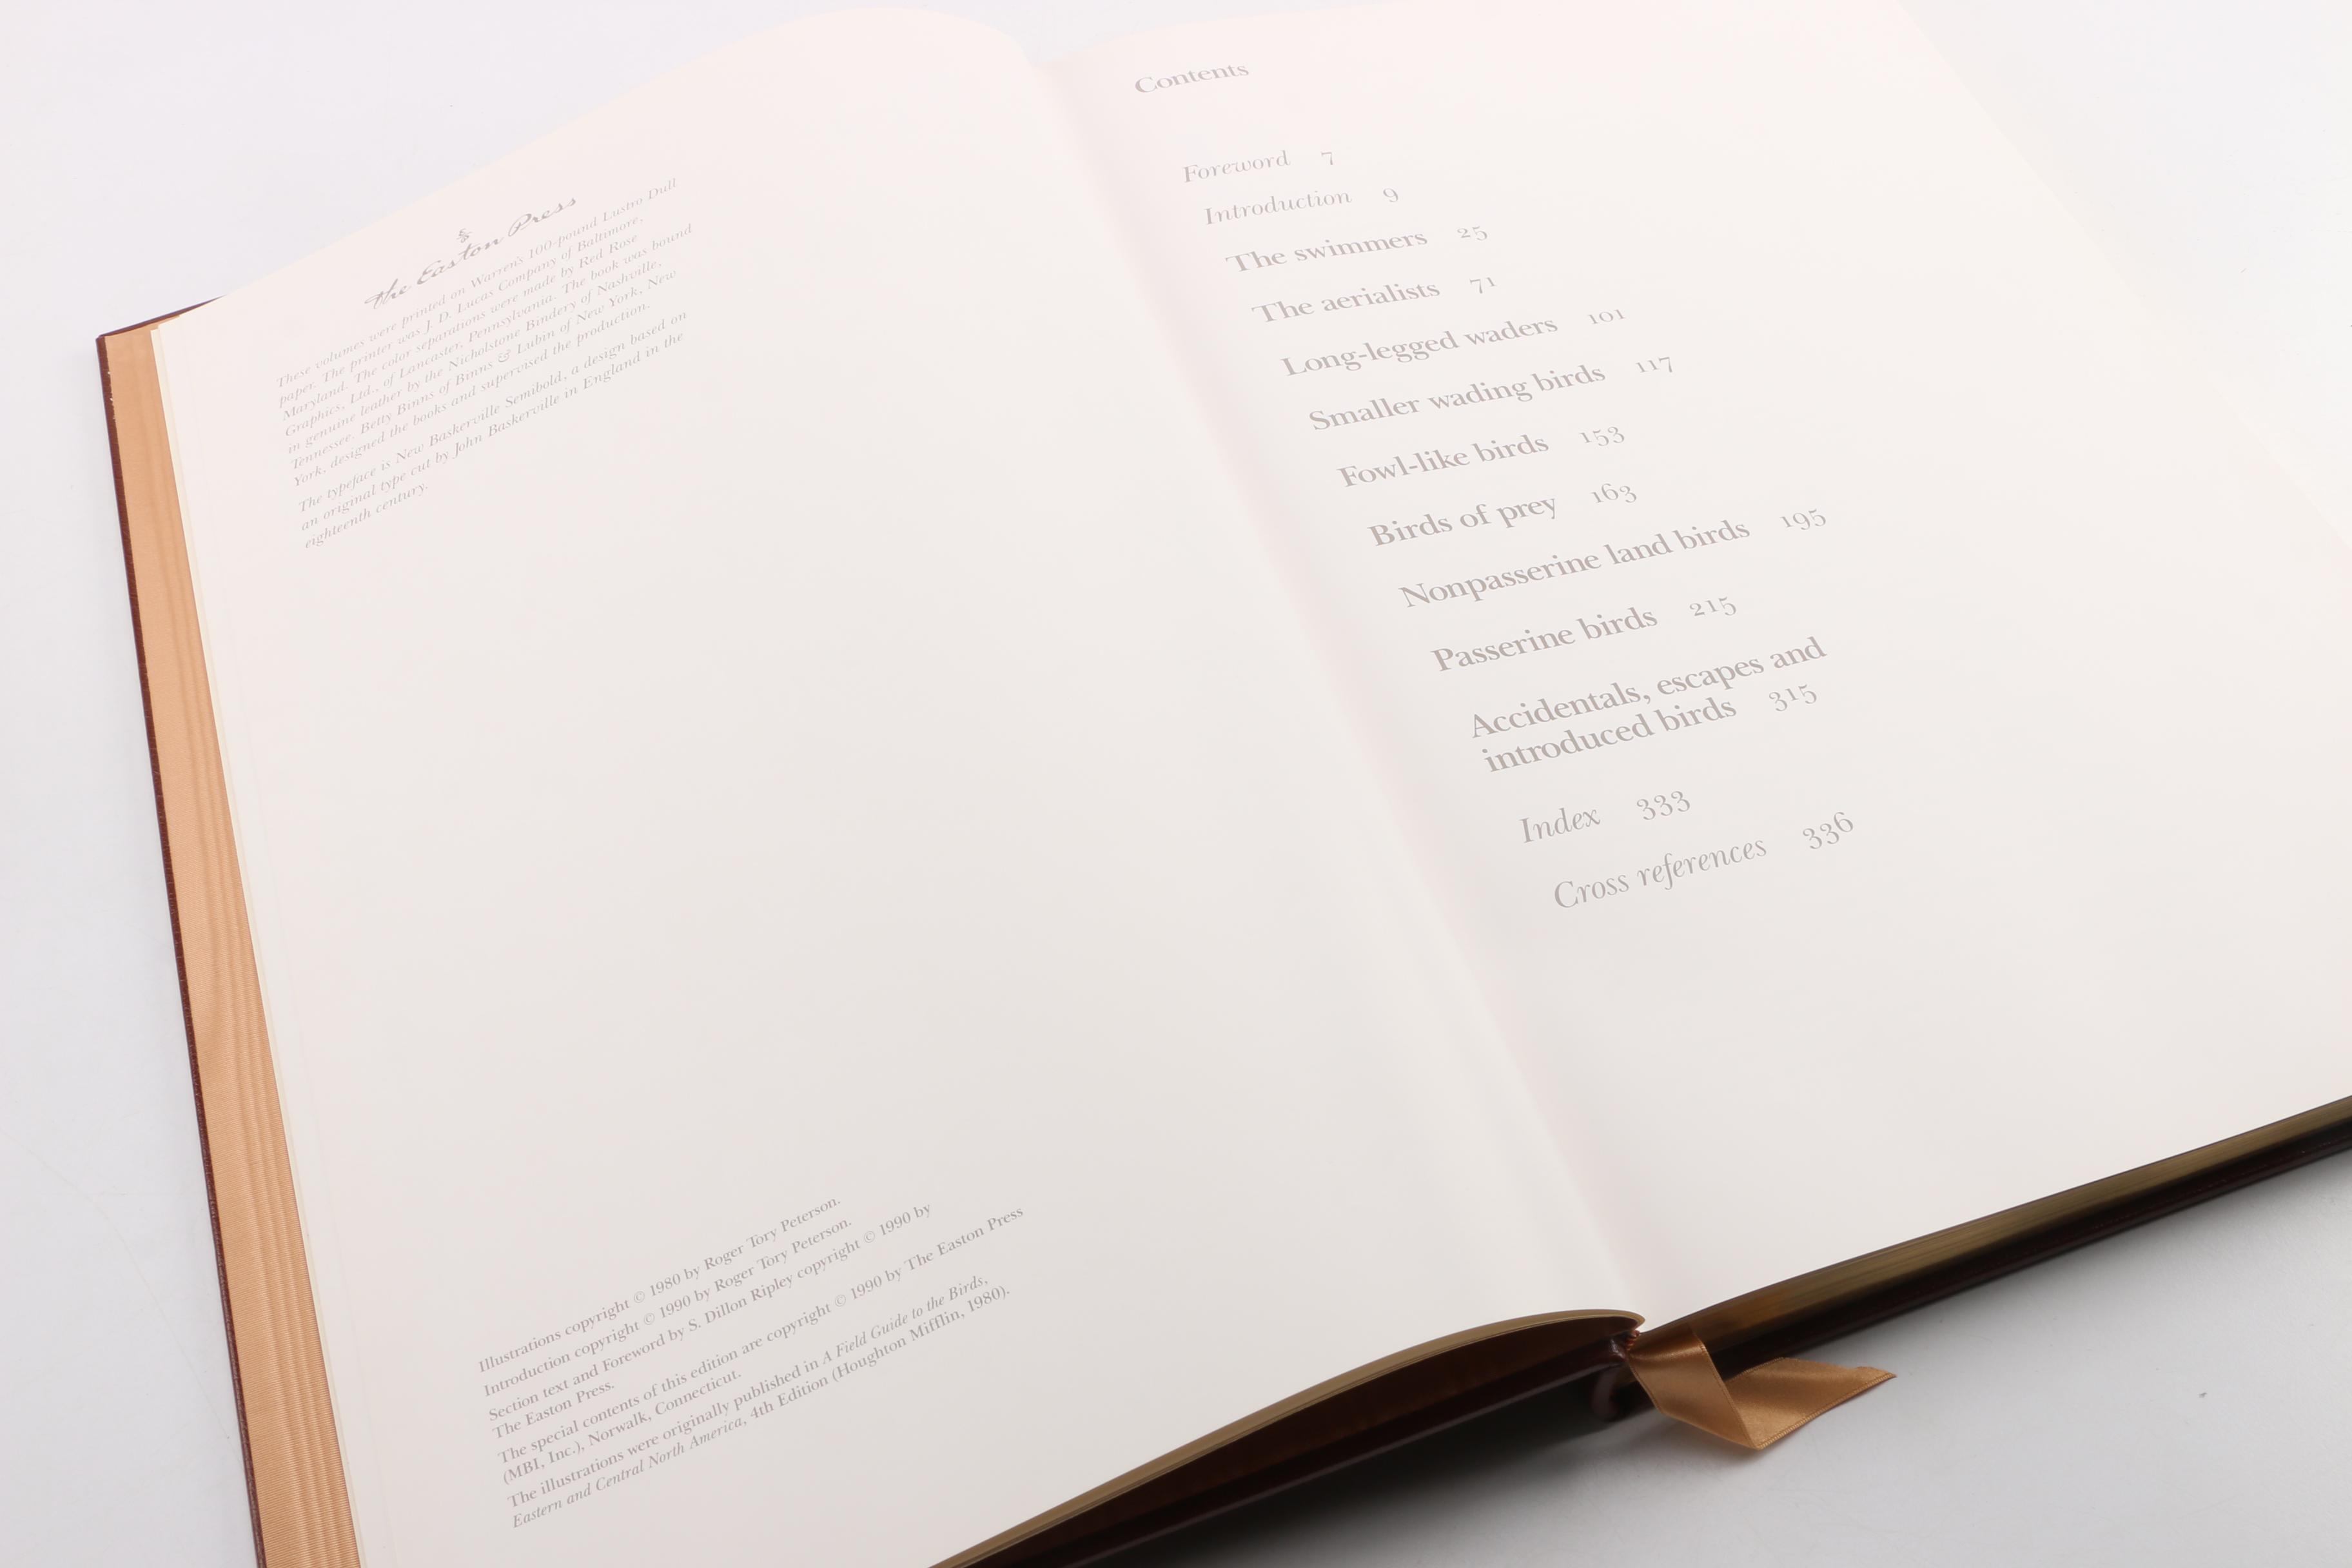 The Easton Press
These volumes were printed on Warren's 100-pound Lustro Dull
paper. The printer was J. D. Lucas Company of Baltimore,
Maryland. The color separations were made by Red Rose
Graphics, Ltd., of Lancaster, Pennsylvania. The book was bound
in genuine leather by the Nicholstone Bindery of Nashville,
Tennessee. Betty Binns of Binns & Lubin of New York, New
York, designed the books and supervised the production.
The typeface is New Baskerville Semibold, a design based on
an original type cut by John Baskerville in England in the
eighteenth century.
Illustrations copyright © 1980 by Roger Tory Peterson.
Introduction copyright © 1990 by Roger Tory Peterson.
Section text and Foreword by S. Dillon Ripley copyright © 1990 by
The Easton Press.
The special contents of this edition are copyright © 1990 by The Easton Press
(MBI, Inc.), Norwalk, Connecticut.
The illustrations were originally published in A Field Guide to the Birds,
Eastern and Central North America, 4th Edition (Houghton Mifflin, 1980).
Contents
Foreword 7
Introduction 9
The swimmers 25
The aerialists 71
Long-legged waders 101
Smaller wading birds 117
Fowl-like birds 153
Birds of prey 163
Nonpasserine land birds 195
Passerine birds 215
Accidentals, escapes and
introduced birds 315
Index 333
Cross references 336